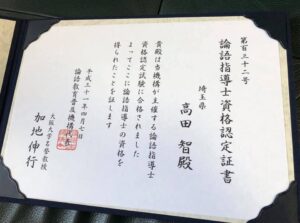 第百三十二号
論語指導士資格認定証書
埼玉県
高田 智殿
貴殿は当機構が主催する論語指導士
資格認定試験に合格されました
よってここに論語指導士の資格を
得られたことを証します
平成三十一年四月七日
論語教育普及機構代表
大阪大学名誉教授
加地 伸行